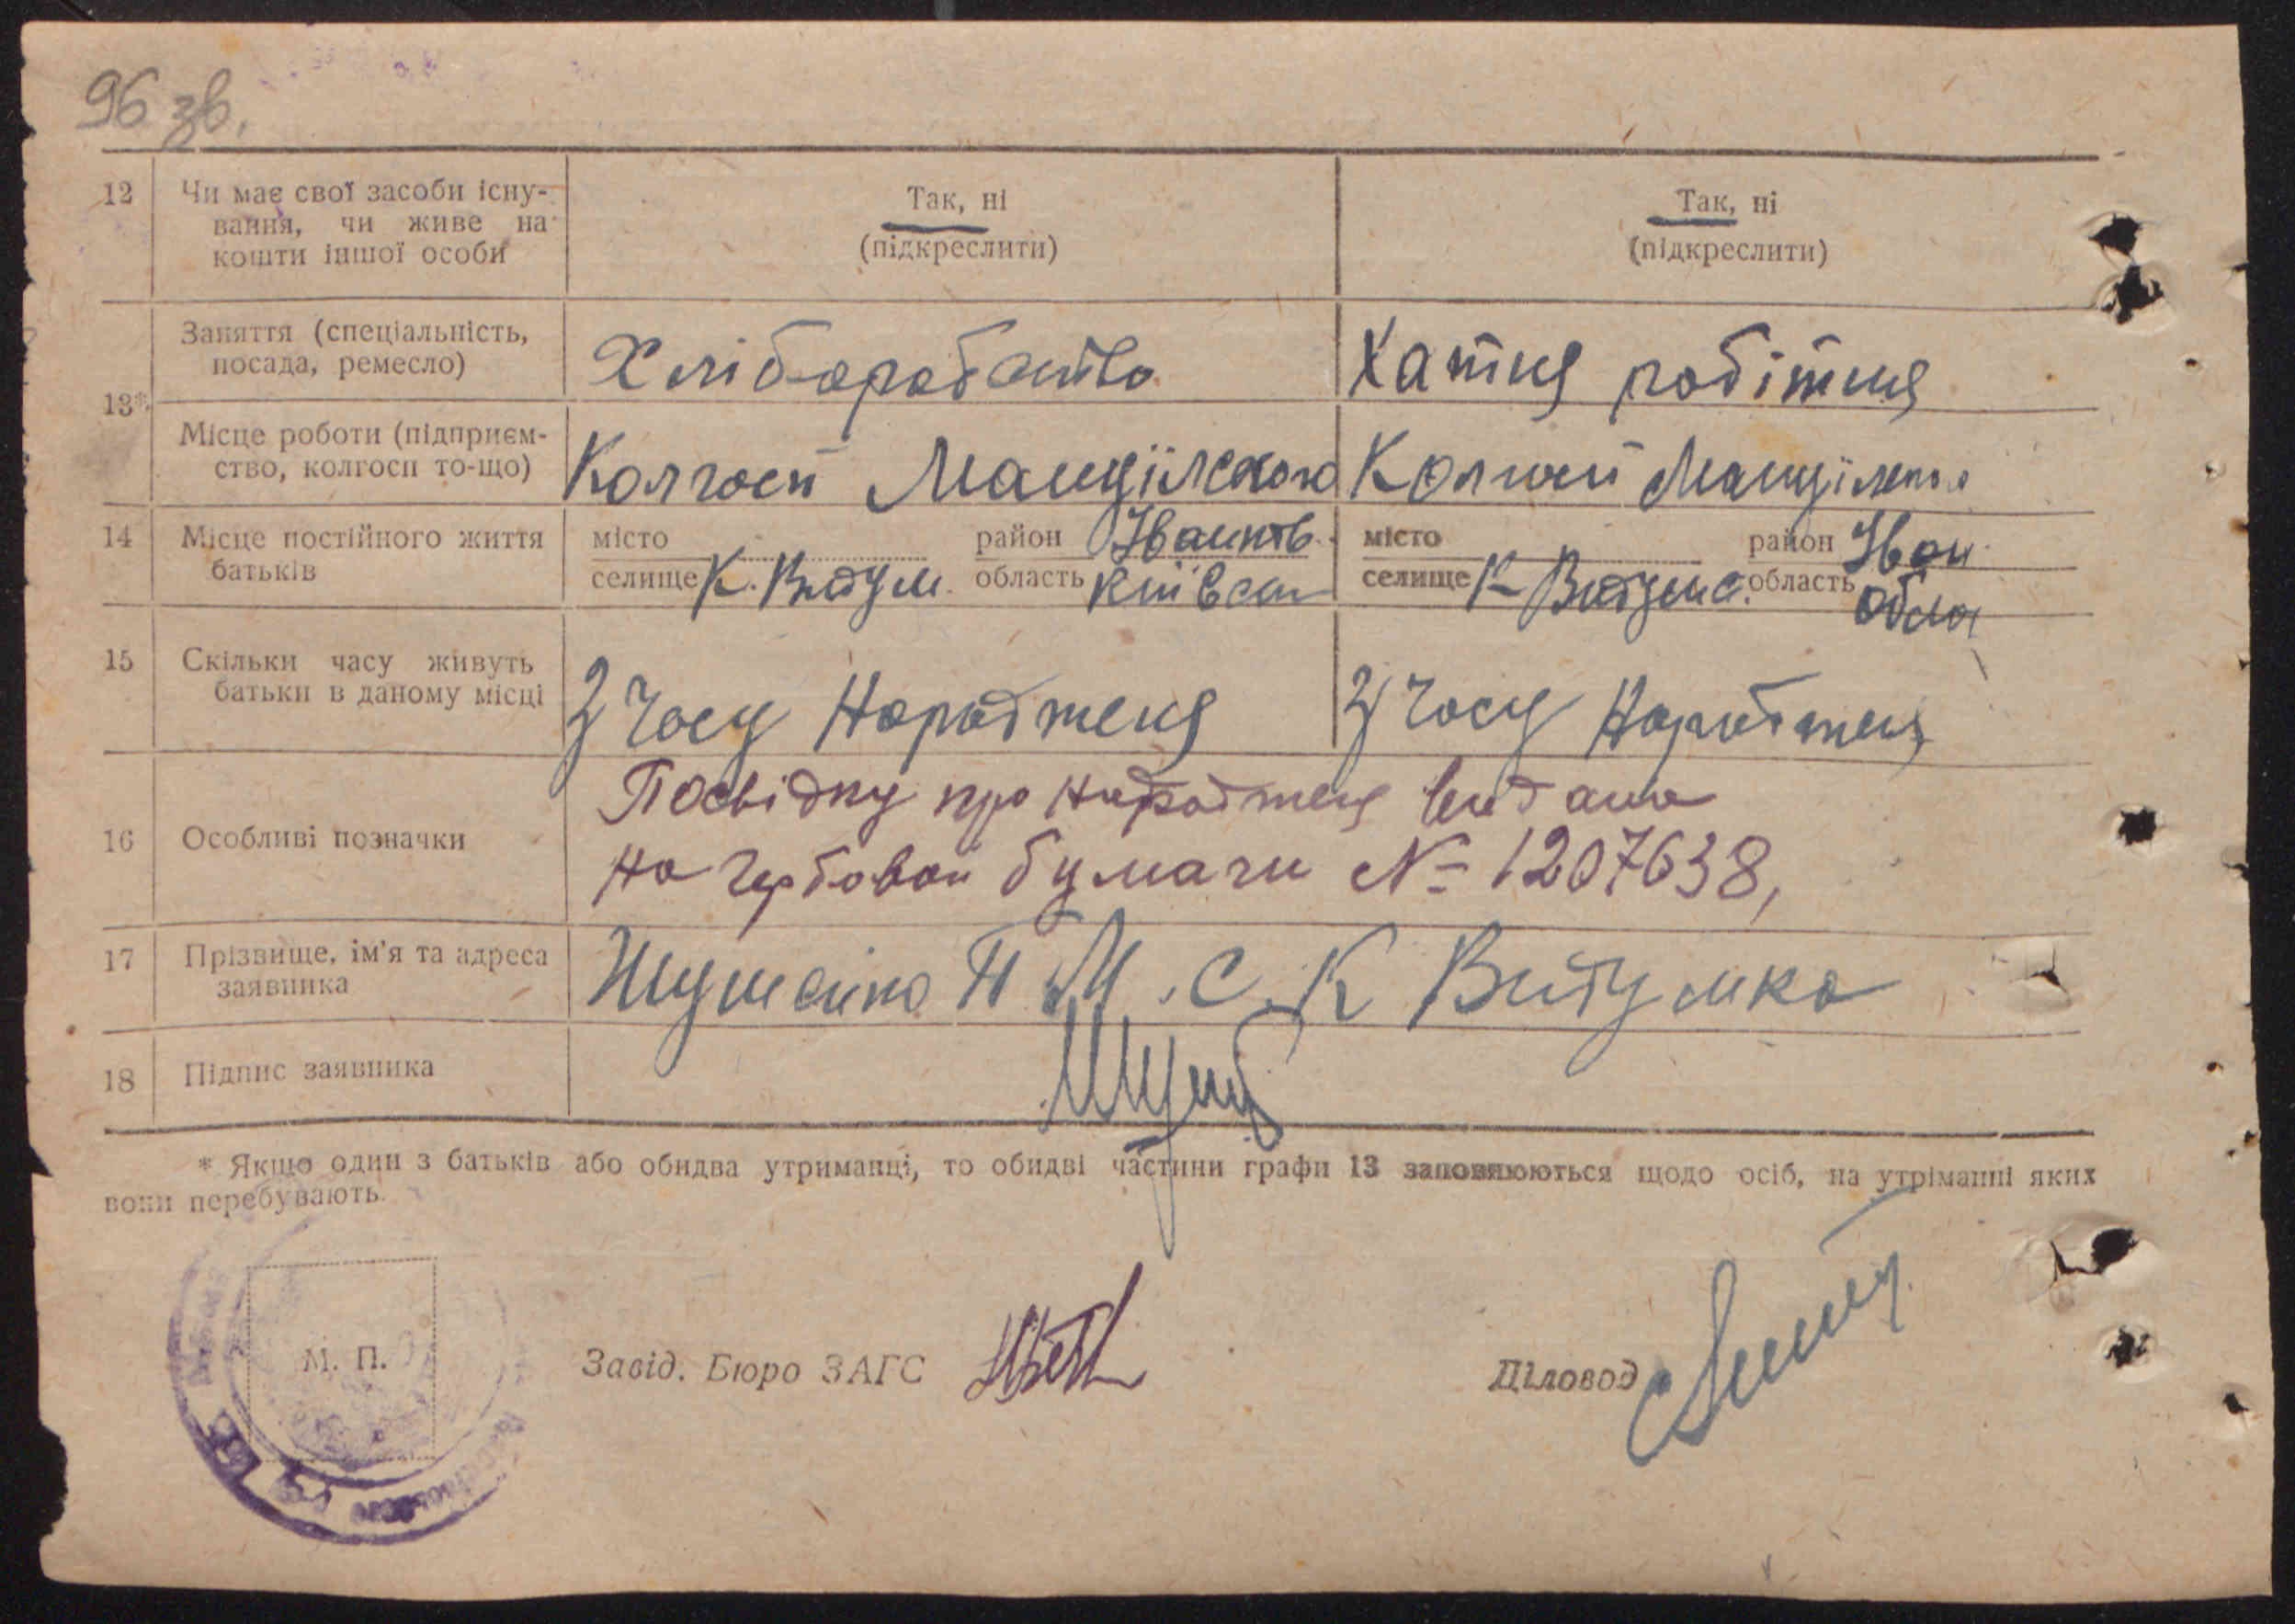 96 зв.
12 Чи має свої засоби існу- Так, ні Так, ні
вання, чи живе на (підкреслити) (підкреслити)
кошти іншої особи
13*
Заняття (спеціальність, Хліборобство Хатня робітня
посада, ремесло)
Місце роботи (підприєм- Колгосп Колгосп
ство, колгосп то-що)
14 Місце постійного життя місто район місто район Іван
батьків селище К. область селище К- область
15 Скільки часу живуть З часу Народженя З часу Народженя
батьки в даному місці
Посвідку про Народженя видано
16 Особливі позначки На гербовой бумаги № 1207638,
17 Прізвище, ім'я та адреса П М. С. К
заявника
18 Підпис заявника
* Якщо один з батьків або обидва утриманці, то обидві частини графи 13 заповнюються щодо осіб, на утріманні яких
вони перебувають.
М. П. Завід. Бюро ЗАГС Діловод